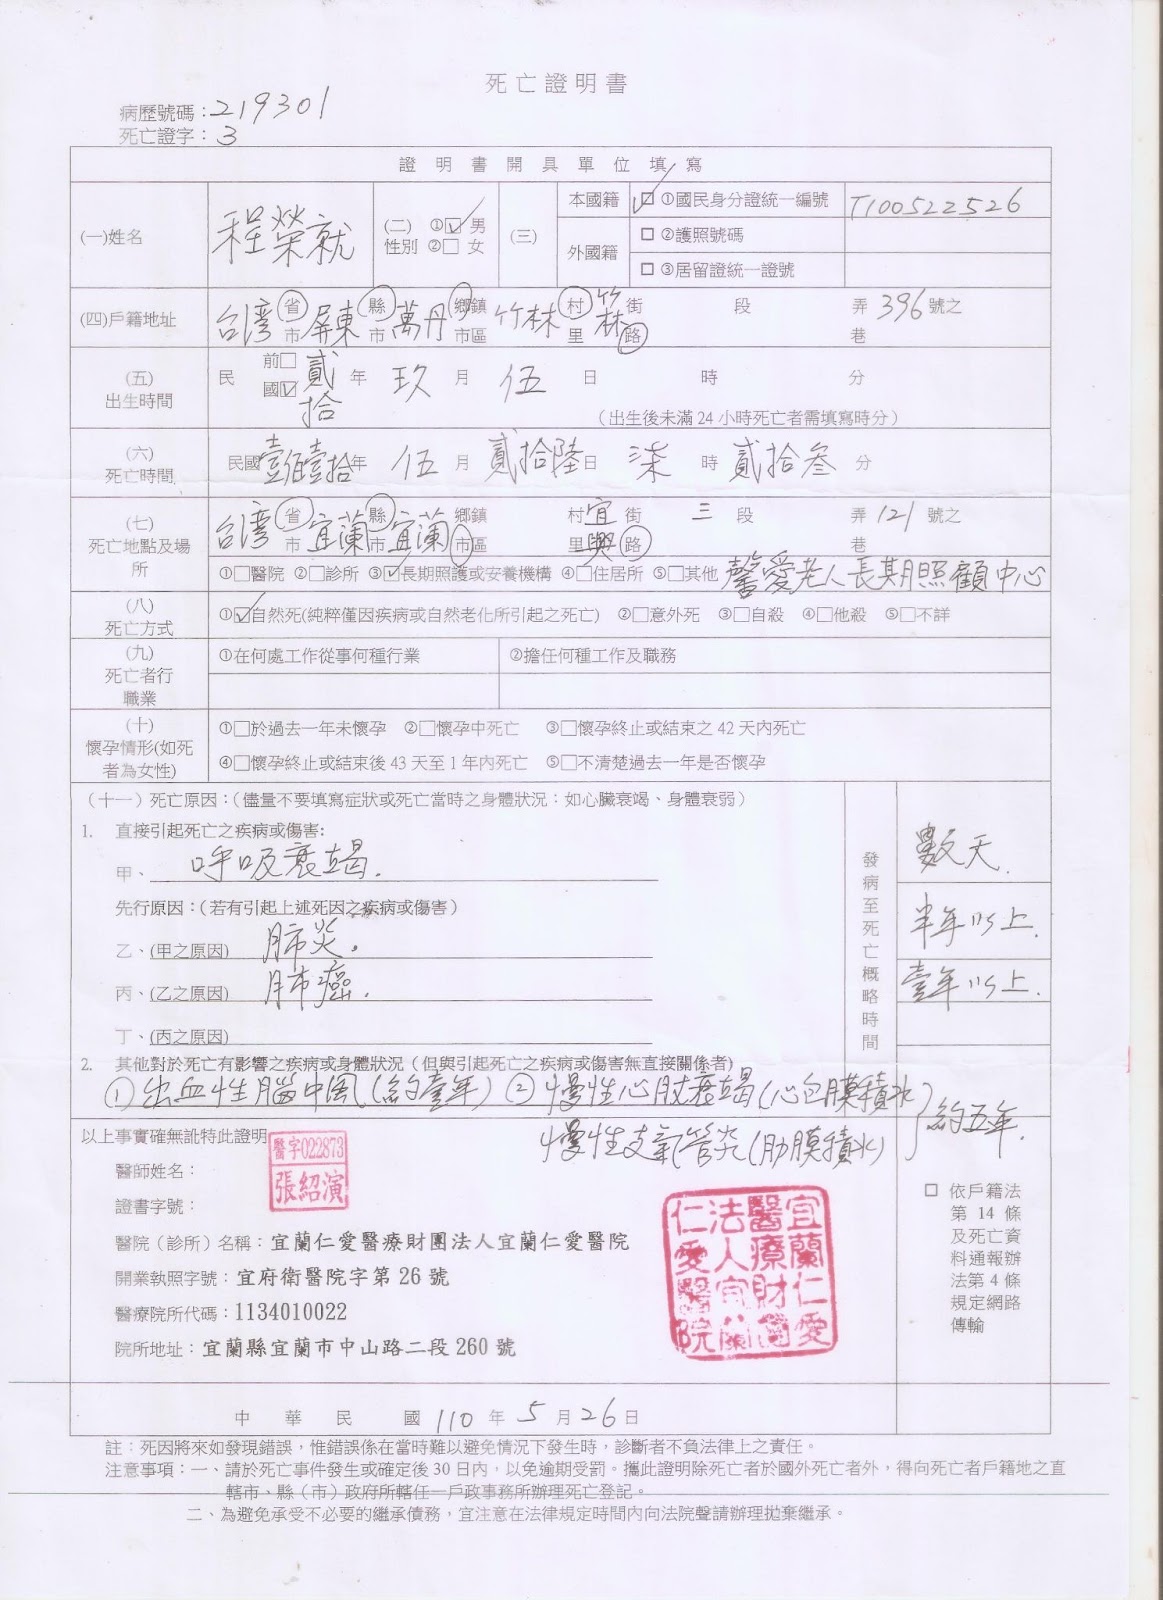 死亡證明書
病歷號碼：219301
死亡證字：3
證明書開具單位填寫
(一)姓名 程榮就 (二)性別 ①☑男 ②□女 (三) 本國籍 ☑①國民身分證統一編號 T100522526
外國籍 □②護照號碼
□③居留證統一證號
(四)戶籍地址 台湾省市 屏東縣市 萬丹鄉鎮市區 竹林村里 街路 段 弄巷 396號之
(五)出生時間 民前□國☑ 貳拾年 玖月 伍日 時 分
（出生後未滿24小時死亡者需填寫時分）
(六)死亡時間 民國壹佰壹拾年 伍月 貳拾陸日 柒時 貳拾叁分
(七)死亡地點及場所 台湾省市 宜蘭縣市 宜蘭鄉鎮市區 村里 宜興街路 三段 弄巷 121號之
①□醫院 ②□診所 ③☑長期照護或安養機構 ④□住居所 ⑤□其他 馨愛老人長期照顧中心
(八)死亡方式 ①☑自然死(純粹僅因疾病或自然老化所引起之死亡) ②□意外死 ③□自殺 ④□他殺 ⑤□不詳
(九)死亡者行職業 ①在何處工作從事何種行業 ②擔任何種工作及職務
(十)懷孕情形(如死者為女性) ①□於過去一年未懷孕 ②□懷孕中死亡 ③□懷孕終止或結束之42天內死亡
④□懷孕終止或結束後43天至1年內死亡 ⑤□不清楚過去一年是否懷孕
（十一）死亡原因：（儘量不要填寫症狀或死亡當時之身體狀況：如心臟衰竭、身體衰弱） 發病至死亡概略時間
1. 直接引起死亡之疾病或傷害:
甲、呼吸衰竭. 數天.
先行原因：（若有引起上述死因之疾病或傷害）
乙、(甲之原因) 肺炎. 半年以上.
丙、(乙之原因) 肺癌. 壹年以上.
丁、(丙之原因)
2. 其他對於死亡有影響之疾病或身體狀況（但與引起死亡之疾病或傷害無直接關係者）
①出血性腦中風(約壹年) ②慢性心肺衰竭(心包膜積水)
慢性支氣管炎(肋膜積水) 約五年.
以上事實確無訛特此證明
醫字022873
張紹演
醫師姓名：
證書字號：
醫院（診所）名稱：宜蘭仁愛醫療財團法人宜蘭仁愛醫院
開業執照字號：宜府衛醫院字第26號
醫療院所代碼：1134010022
院所地址：宜蘭縣宜蘭市中山路二段260號
宜蘭仁愛
醫療財團
法人宜蘭
仁愛醫院
□ 依戶籍法
第14條
及死亡資
料通報辦
法第4條
規定網路
傳輸
中華民國110年5月26日
註：死因將來如發現錯誤，惟錯誤係在當時難以避免情況下發生時，診斷者不負法律上之責任。
注意事項：一、請於死亡事件發生或確定後30日內，以免逾期受罰。攜此證明除死亡者於國外死亡者外，得向死亡者戶籍地之直
轄市、縣（市）政府所轄任一戶政事務所辦理死亡登記。
二、為避免承受不必要的繼承債務，宜注意在法律規定時間內向法院聲請辦理拋棄繼承。